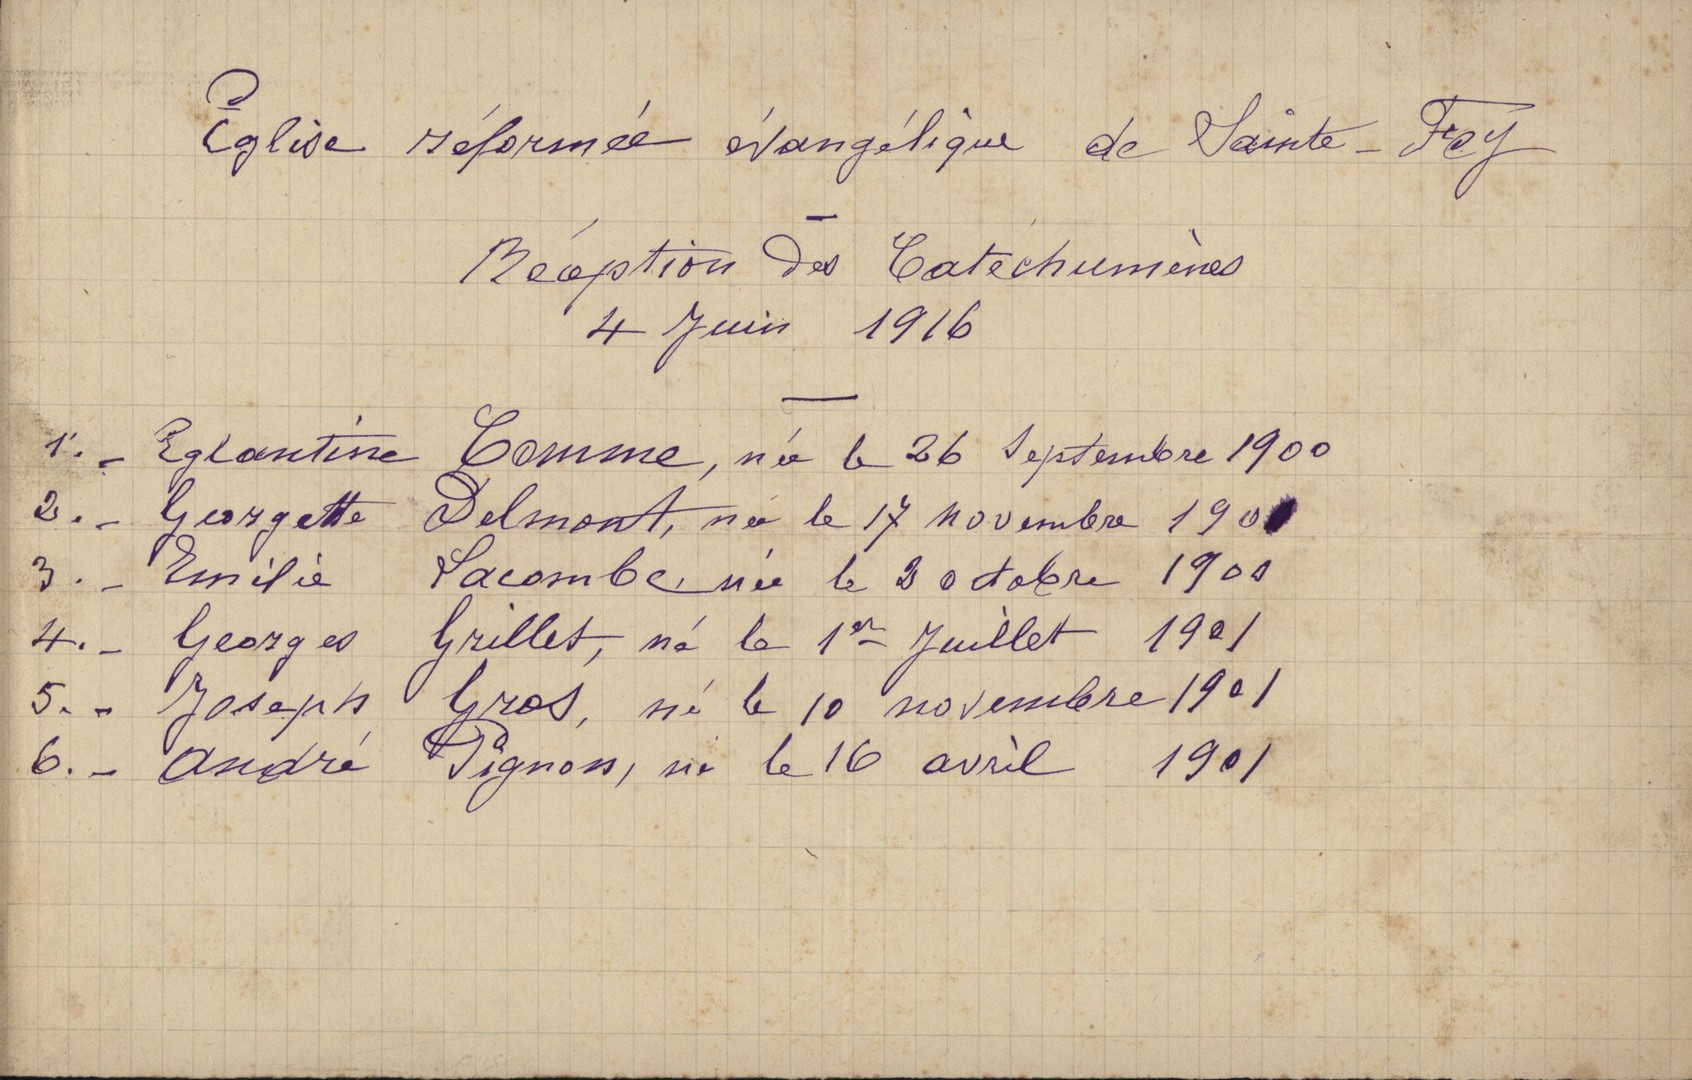 Eglise réformée évangélique de Sainte-Foy
Réception des Catéchumènes
4 Juin 1916
1. - Eglantine Comme, née le 26 Septembre 1900
2. - Georgette Delmont, née le 17 novembre
3. - Emilie Lacombe, née le 2 octobre
4. - Georges Grillet, né le 1er Juillet 1901
5. - Joseph Gros, né le 10 novembre 1901
6. - André Pignon, né le 16 avril 1901